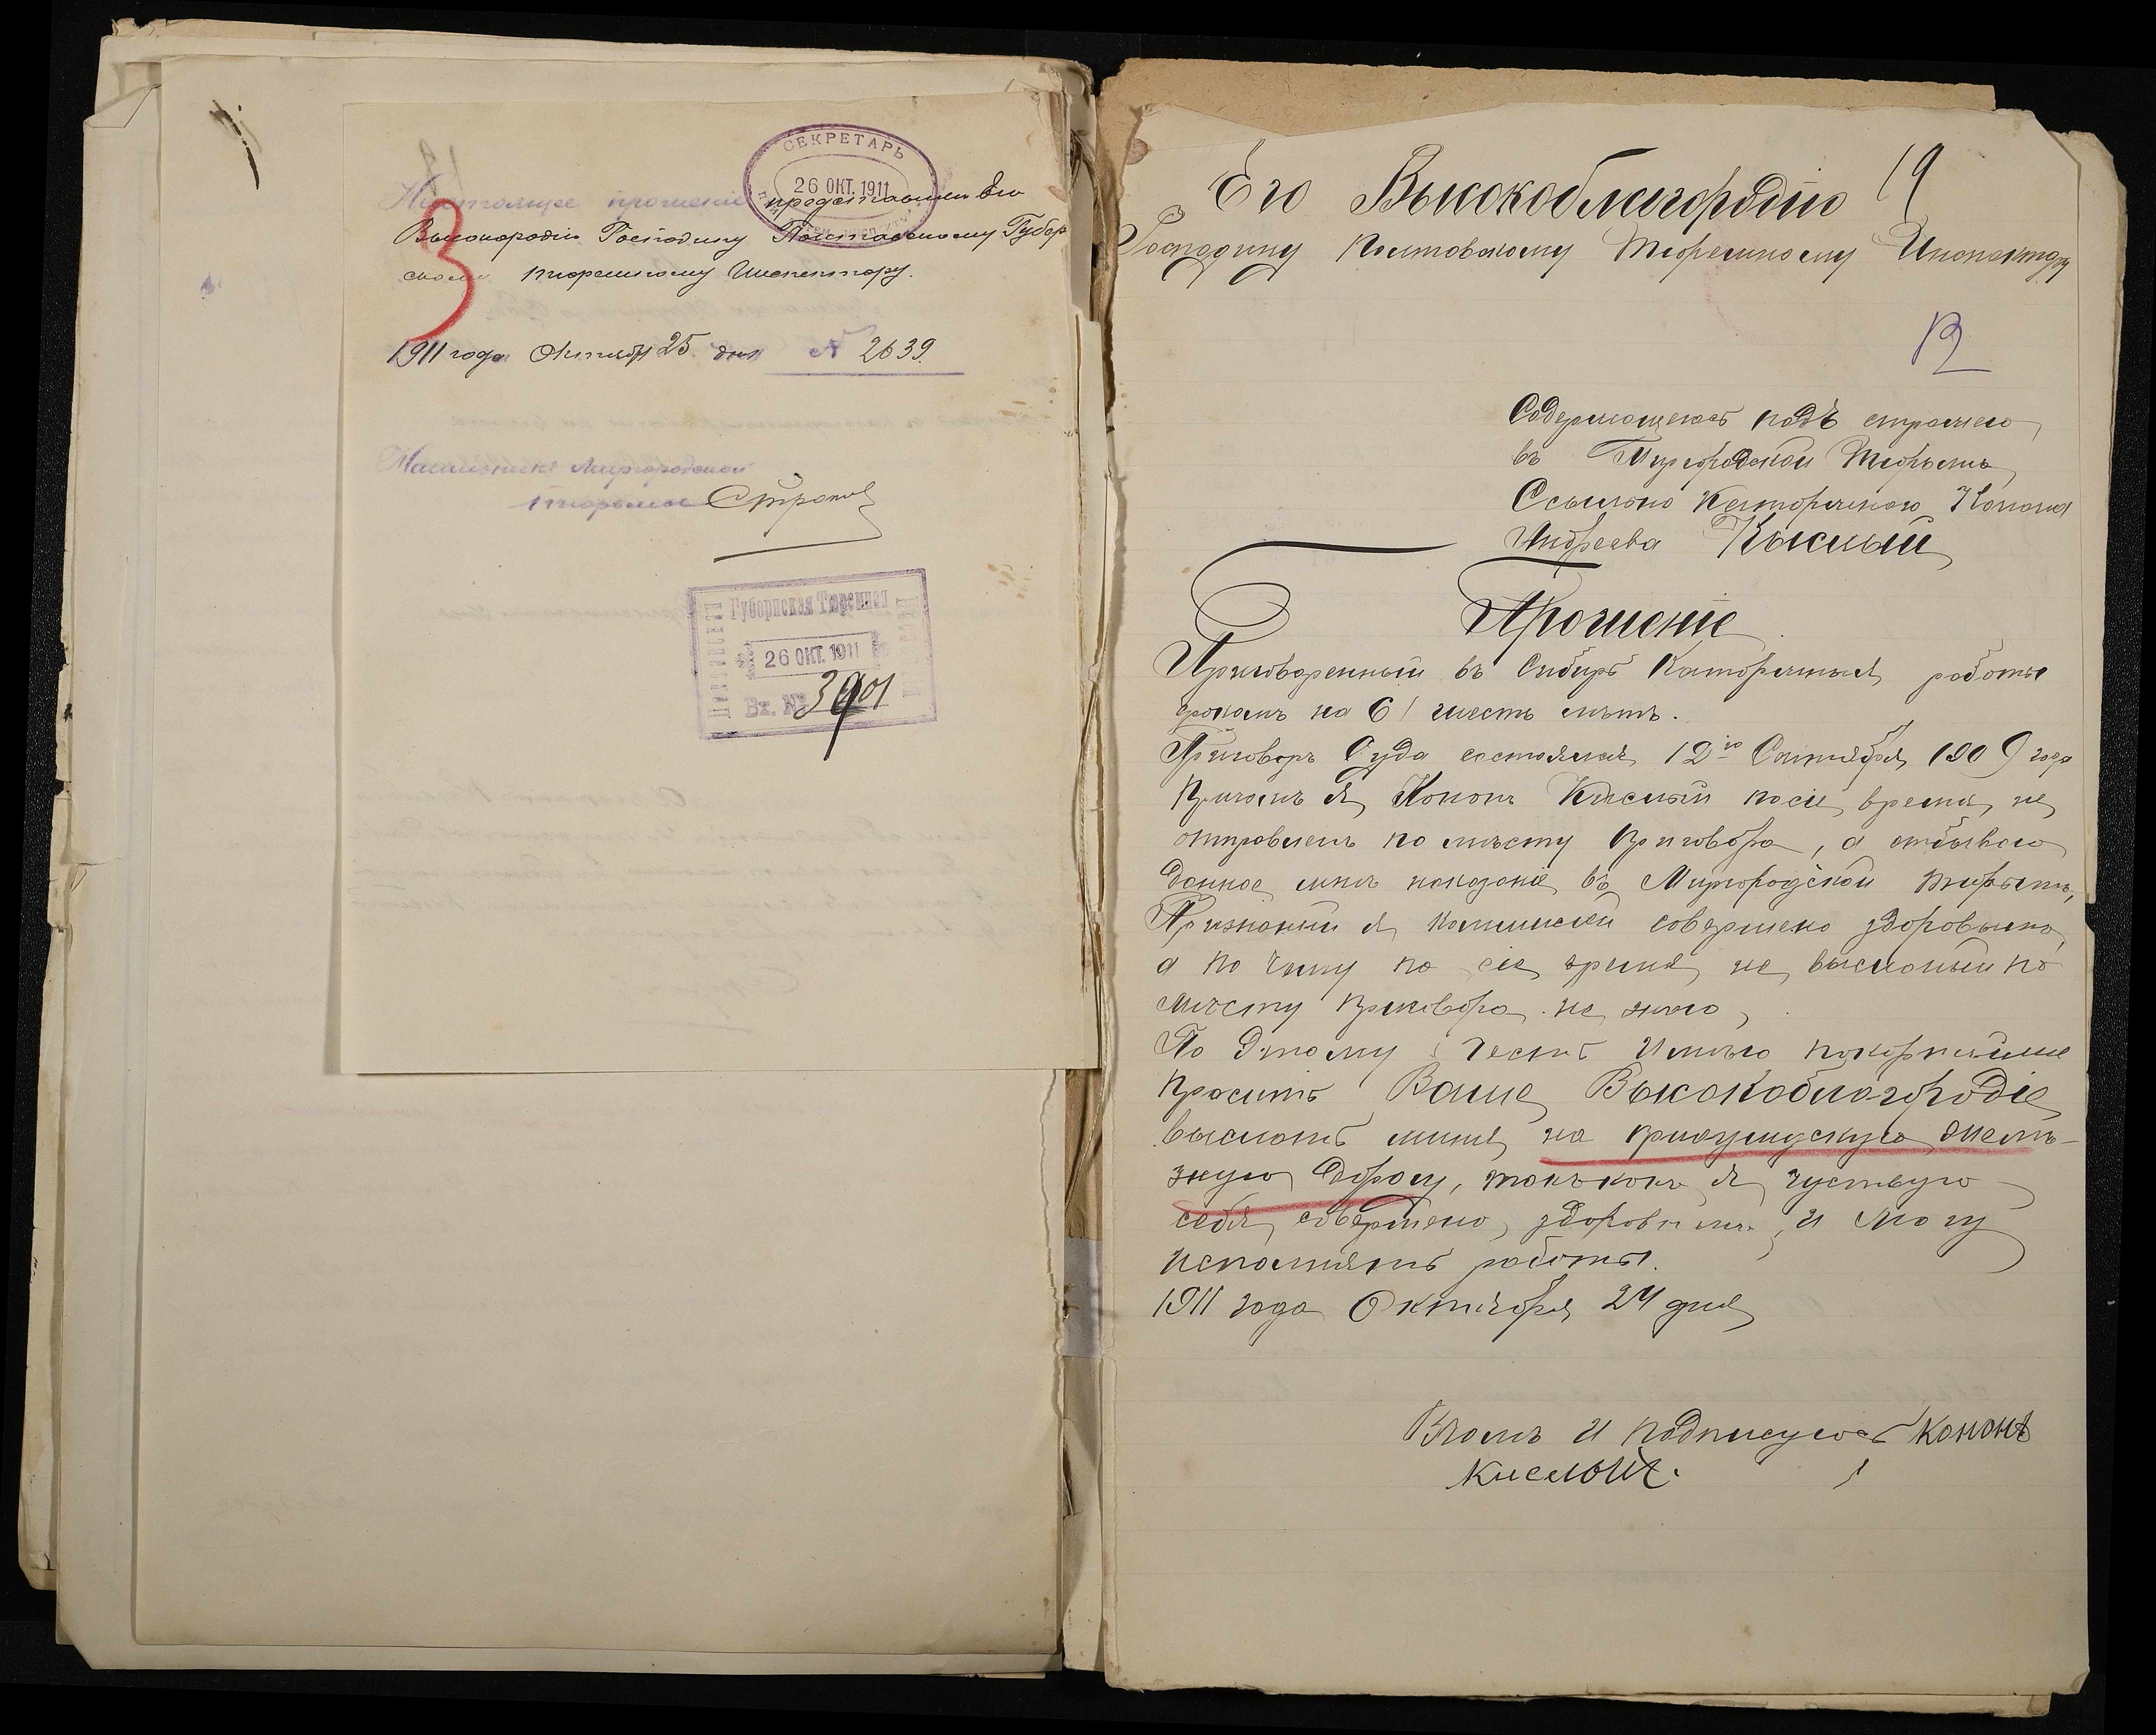 СЕКРЕТАРЬ
26 ОКТ. 1911
Настоящее прошеніе представляю Его
Высокородію Господину Полтавскому Губерн
скому тюремному Инспектору.
1911 года Октября 25 дня № 2639
Начальникъ Миргородской
тюрьмы
Губернская Тюремная
26 ОКТ. 1911
Вх. № 3901
Его Высокоблагородію 19
Господину Полтовскому Тюремному Инспектору
12
Содержащегось подъ стражею
въ Миргородской Тюрьмѣ
Ссыльно Каторжного Конона
Андреева Кыслый
Прошеніе
Приговоренный въ Сибирь Каторжныя работы
срокомъ на 6/ шесть лѣтъ.
Приговоръ Суда состоялся 12го Сентября 1909 года
Причемъ Я Кононъ Кислый посіе время не
отправленъ по мѣсту приговора, а отбываю
данное мнѣ наказаніе въ Миргородской тюрьмѣ,
Признаный я Коммисіей совершено здоровымъ,
а по чему по сіе время не высланый по
мѣсту приговора не знаю,
По Этому Честь Имѣю покорнейше
просить Ваше Высокоблагородіе
выслать мине на приамурскую желѣ-
зную дорогу, такъ какъ я чуствую
себя совершено здоровымъ, и могу
исполнять работы.
1911 года Октября 24 дня
Втомъ и подписуюсь Кононъ
Кислый.